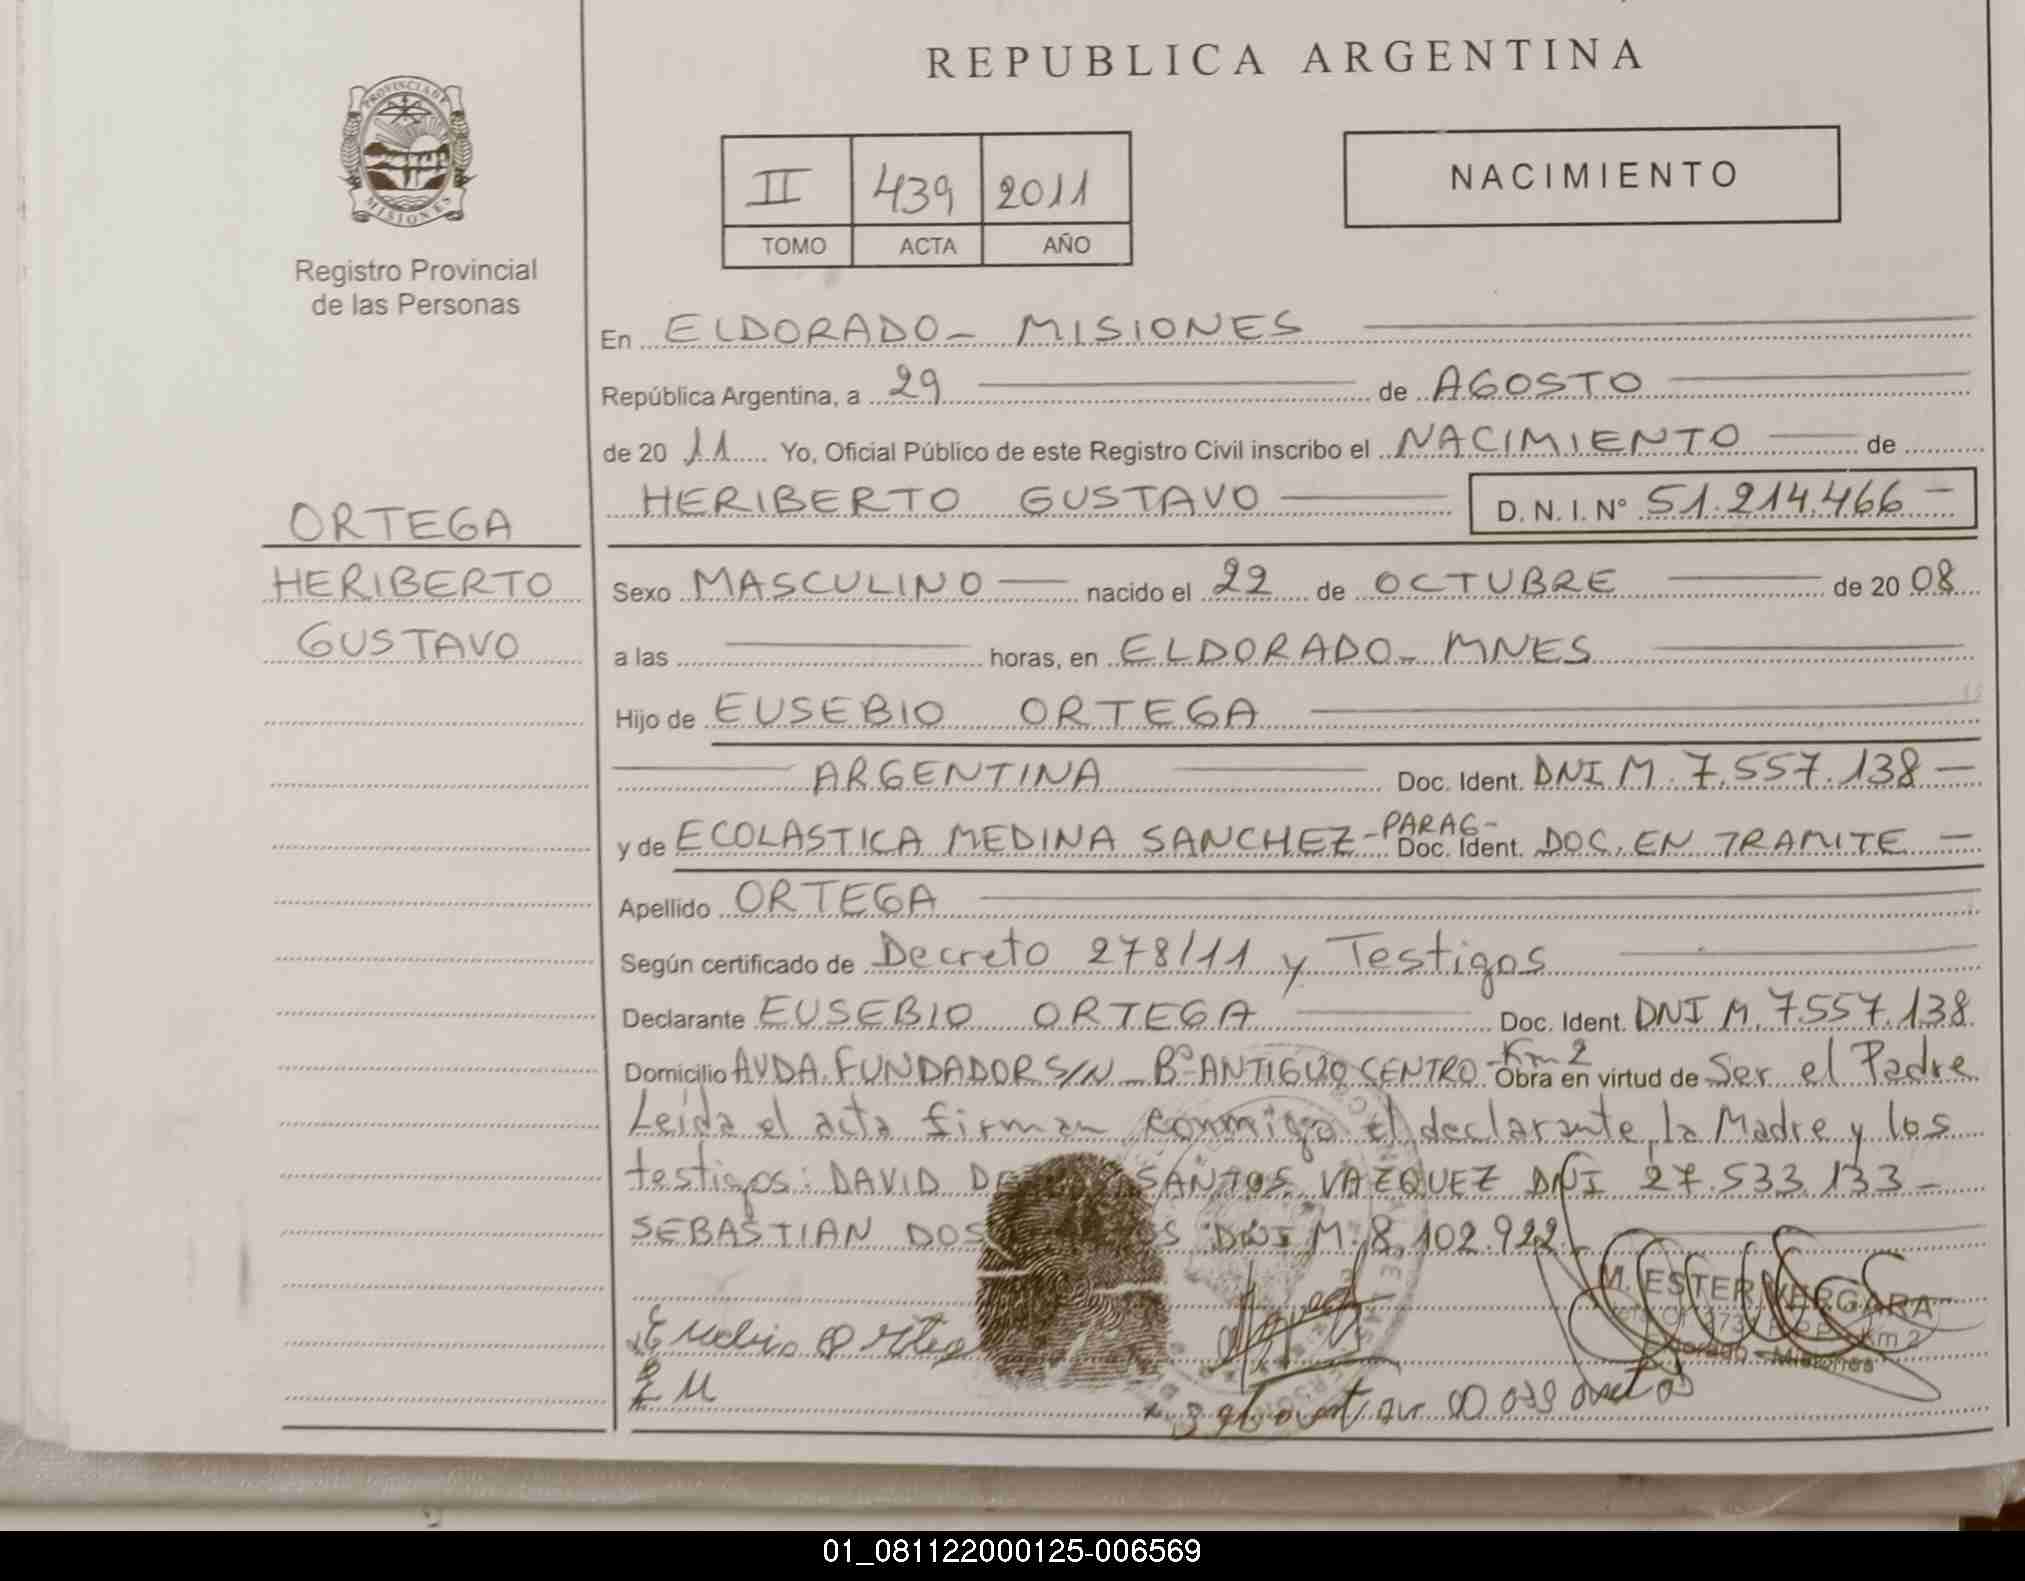 REPUBLICA ARGENTINA
PROVINCIA DE
MISIONES
Registro Provincial
de las Personas
II 439 2011
TOMO ACTA AÑO
NACIMIENTO
En ELDORADO - MISIONES
República Argentina, a 29 de AGOSTO
de 20 11 Yo, Oficial Público de este Registro Civil inscribo el NACIMIENTO de
HERIBERTO GUSTAVO D. N. I. N° 51.214.466 -
ORTEGA
HERIBERTO
GUSTAVO
Sexo MASCULINO nacido el 22 de OCTUBRE de 20 08
a las horas, en ELDORADO - MNES
Hijo de EUSEBIO ORTEGA
ARGENTINA Doc. Ident. DNI M. 7.557.138 -
y de ECOLASTICA MEDINA SANCHEZ - PARAG - Doc. Ident. DOC. EN TRAMITE -
Apellido ORTEGA
Según certificado de Decreto 278/11 y Testigos
Declarante EUSEBIO ORTEGA Doc. Ident. DNI M. 7.557.138
Domicilio AVDA. FUNDADOR S/N - B° ANTIGUO CENTRO - Km 2 Obra en virtud de Ser el Padre
Leída el acta firman conmigo el declarante, la Madre y los
testigos: DAVID SANTOS VAZQUEZ DNI 27.533.133 -
SEBASTIAN DOS DNI M. 8.102.922 -
M. ESTER VERGARA
Km 2
Eldorado - Misiones
Eusebio Ortega
E M
01_081122000125-006569